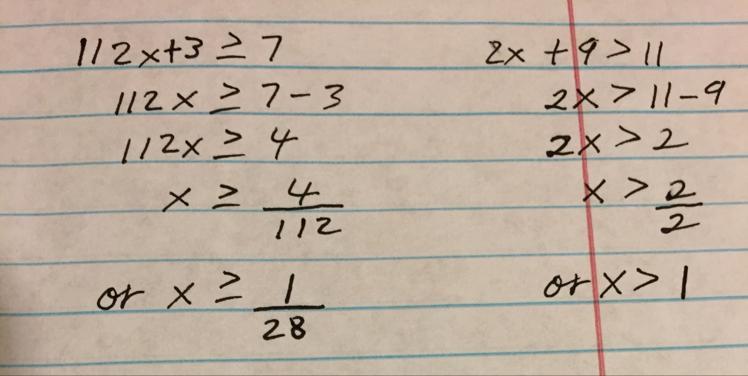 112x+3 ≥ 7
112x ≥ 7-3
112x ≥ 4
x ≥ 4/112
or x ≥ 1/28
2x +9>11
2x > 11-9
2x > 2
x > 2/2
or x > 1